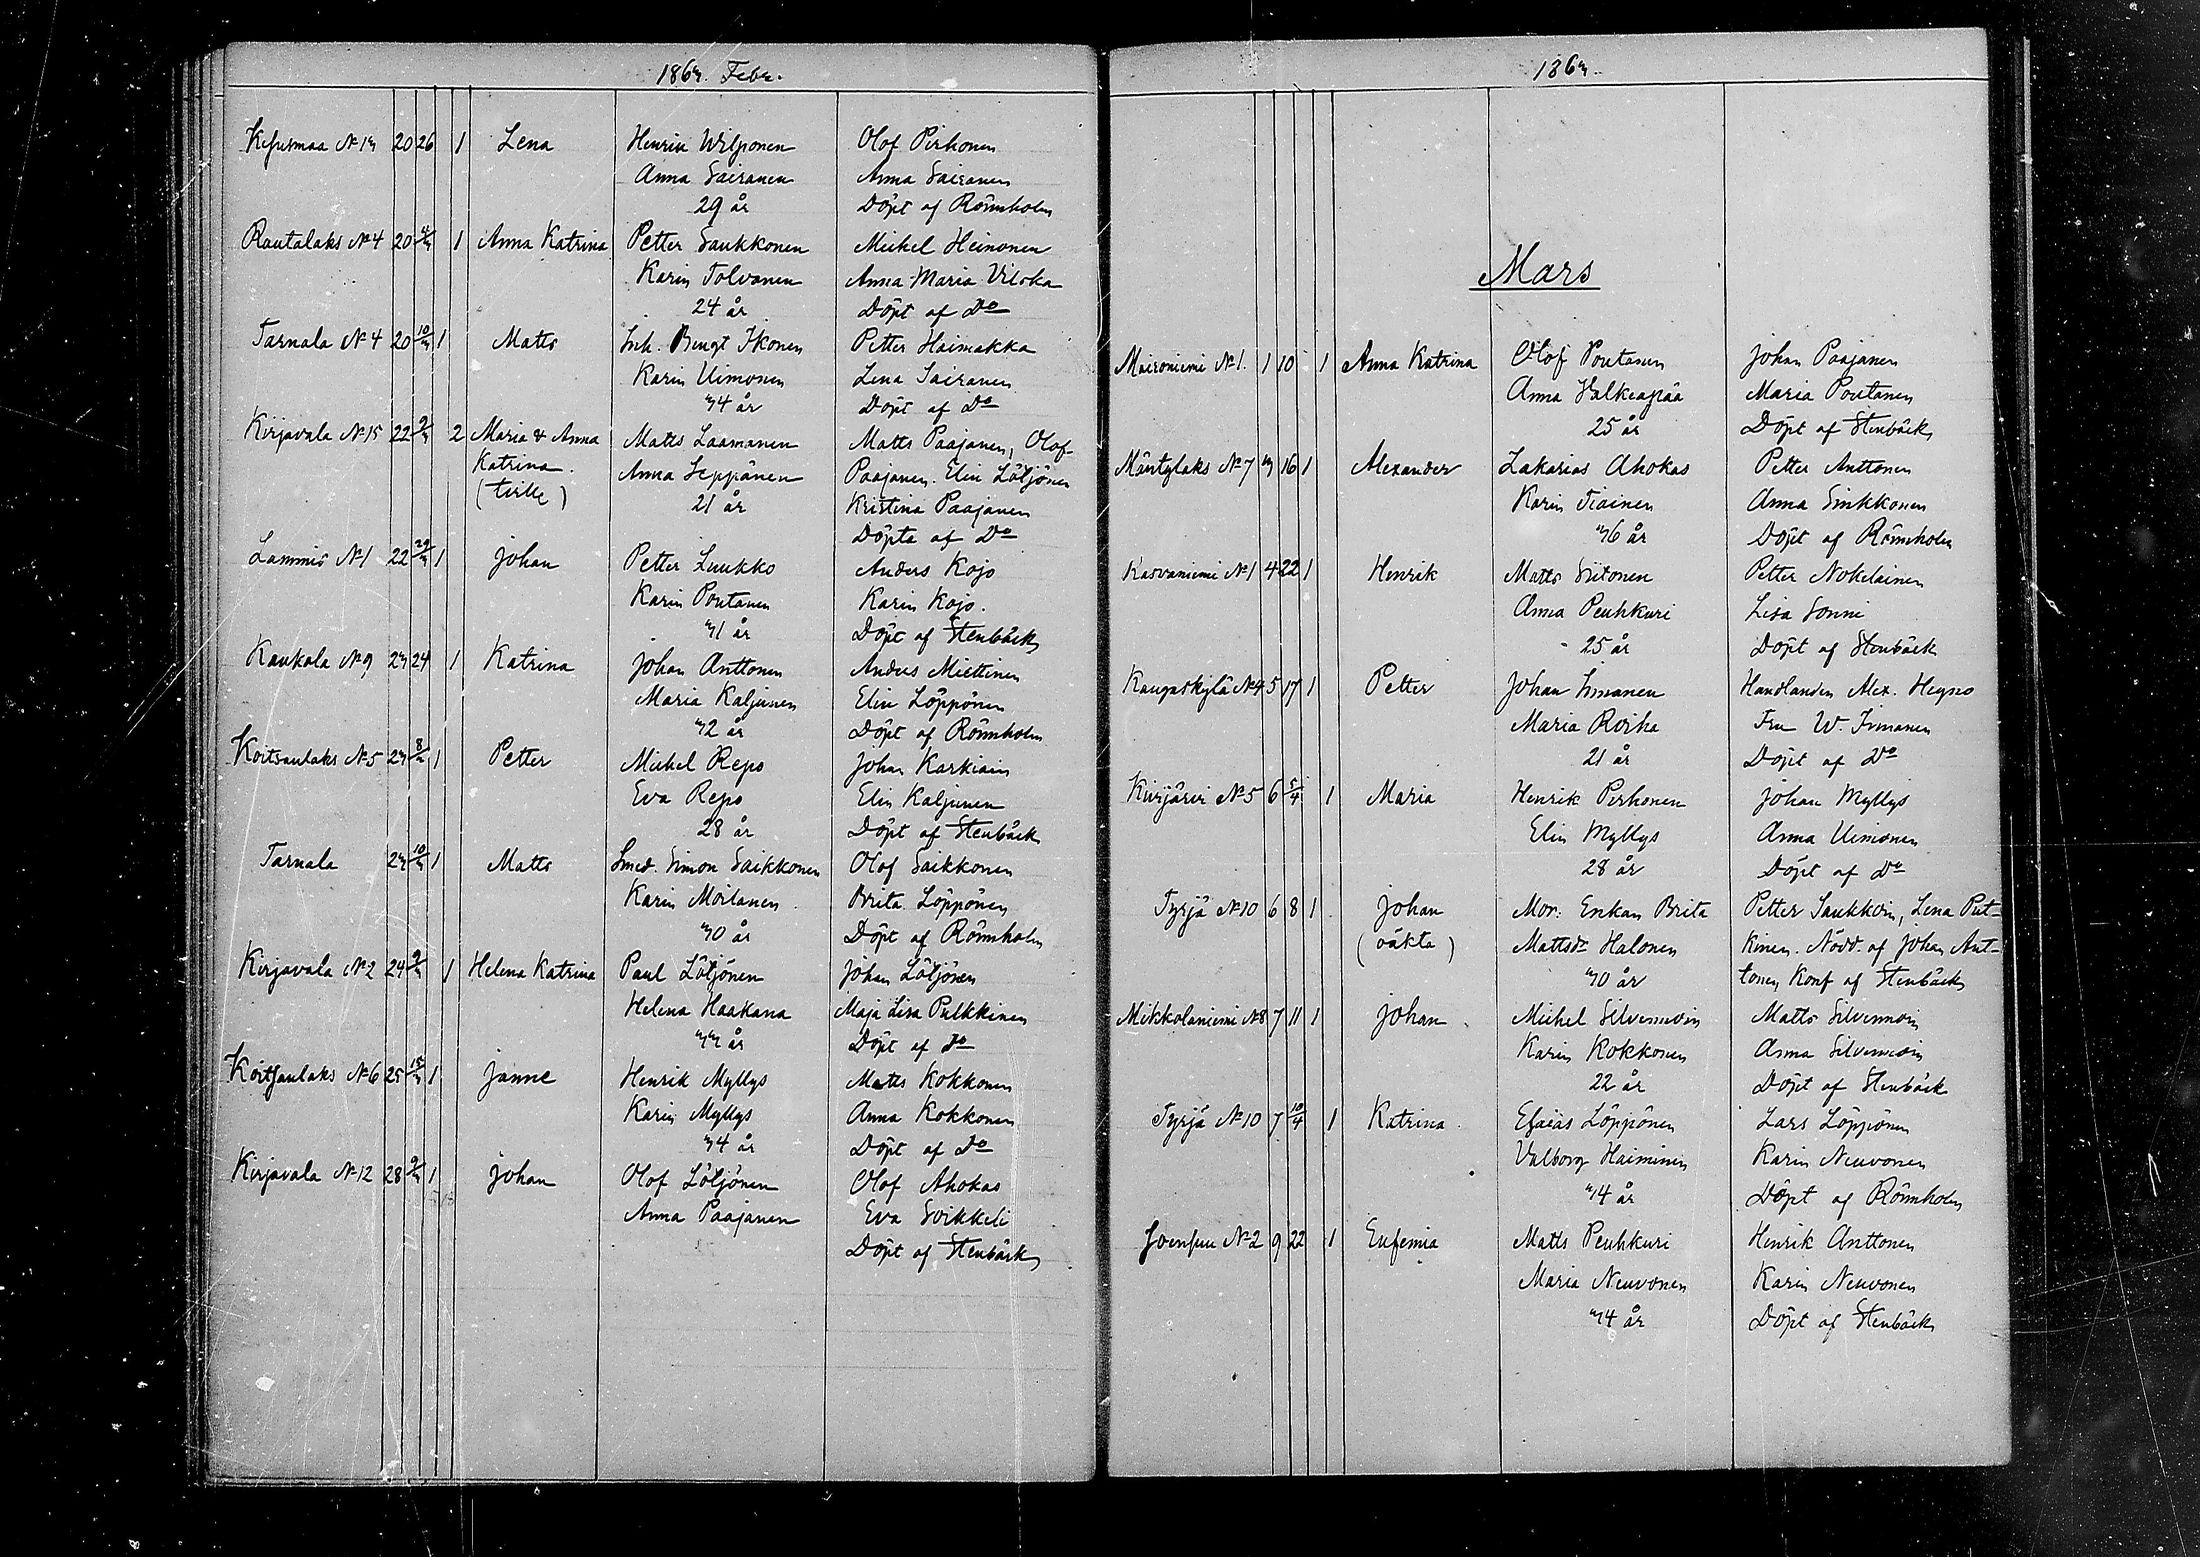 1863. Febr.
Kesusmaa No 13 20 26 1 Lena Henrik Wilponen Olof Pirhonen
Anna Sairanen Anna Sairanen
29 år Döpt af Rönnholm
Rautalaks No 4 20 4/3 1 Anna Katrina Petter Saukkonen Michel Heinonen
Karin Tolvanen Anna Maria Vilska
24 år Döpt af Do
Tarnala No 4 20 10/3 1 Matts Inh. Bengt Ikonen Petter Haimakka
Karin Uimonen Lena Sairanen
34 år Döpt af Do
Kirjavala No 15 22 2/3 2 Maria & Anna Matts Laamanen Matts Paajanen, Olof
Katrina. Anna Seppänen Paajanen. Elin Lötjönen
(tvill.) 21 år Kristina Paajanen
Döpta af Do
Lammis No 1 22 29/3 1 Johan Petter Luukko Anders Kojo
Karin Poutanen Karin Kojo.
31 år Döpt af Stenbäck
Kaukola No 9 23 24 1 Katrina Johan Anttonen Anders Miettinen
Maria Kaljunen Elin Löppönen
32 år Döpt af Rönnholm
Koitsanlaks No 5 23 8/3 1 Petter Michel Repo Johan Karkiain
Eva Repo Elin Kaljunen
28 år Döpt af Stenbäck
Tarnala 23 10/3 1 Matts Smed. Simon Saikkonen Olof Saikkonen
Karin Moilanen Brita Löppönen
30 år Döpt af Rönnholm
Kirjavala No 2 24 2/3 1 Helena Katrina Paul Lötjönen Johan Lötjönen
Helena Haakana Maja Lisa Pulkkinen
33 år Döpt af Do
Koitsanlaks No 6 25 15/3 1 Janne Henrik Myllys Matts Kokkonen
Karin Myllys Anna Kokkonen
34 år Döpt af Do
Kirjavala No 12 28 2/3 1 Johan Olof Lötjönen Olof Ahokas
Anna Paajanen Eva Soikkeli
Döpt af Stenbäck
1863.
Mars
Maironiemi No 1. 1 10 1 Anna Katrina Olof Poutanen Johan Paajanen
Anna Valkeapää Maria Poutanen
25 år Döpt af Stenbäck
Mäntylaks No 7 3 16 1 Alexander Zakarias Ahokas Petter Anttonen
Karin Tiainen Anna Sinkkonen
36 år Döpt af Rönnholm
Kasvaniemi No 1 4 22 1 Henrik Matts Siitonen Petter Nokelainen
Anna Peuhkuri Lisa Sonni
25 år Döpt af Stenbäck
Kangaskylä No 4 5 17 1 Petter Johan Immanen Handlanden Alex. Heyno
Maria Roiha Fru W. Immanen
21 år Döpt af Do
Kivijärvi No 5 6 5/4 1 Maria Henrik Pirhonen Johan Myllys
Elin Myllys Anna Uimonen
28 år Döpt af Do
Tyrjä No 10 6 8 1 Johan Mor: Enkan Brita Petter Saukkoin, Lena Put-
(oäkta) Mattsdr Halonen kinen. Nödd. af Johan Ant-
30 år tonen Konf af Stenbäck
Mikkolaniemi No 8 7 11 1 Johan Michel Silvennoin Matts Silvennoin
Karin Kokkonen Anna Silvennoin
22 år Döpt af Stenbäck
Tyrjä No 10 7 10/4 1 Katrina Esaias Löppönen Lars Löppönen
Valborg Haiminen Karin Neuvonen
34 år Döpt af Rönnholm
Joensuu No 2 9 22 1 Eufemia Matts Peuhkuri Henrik Anttonen
Maria Neuvonen Karin Neuvonen
34 år Döpt af Stenbäck